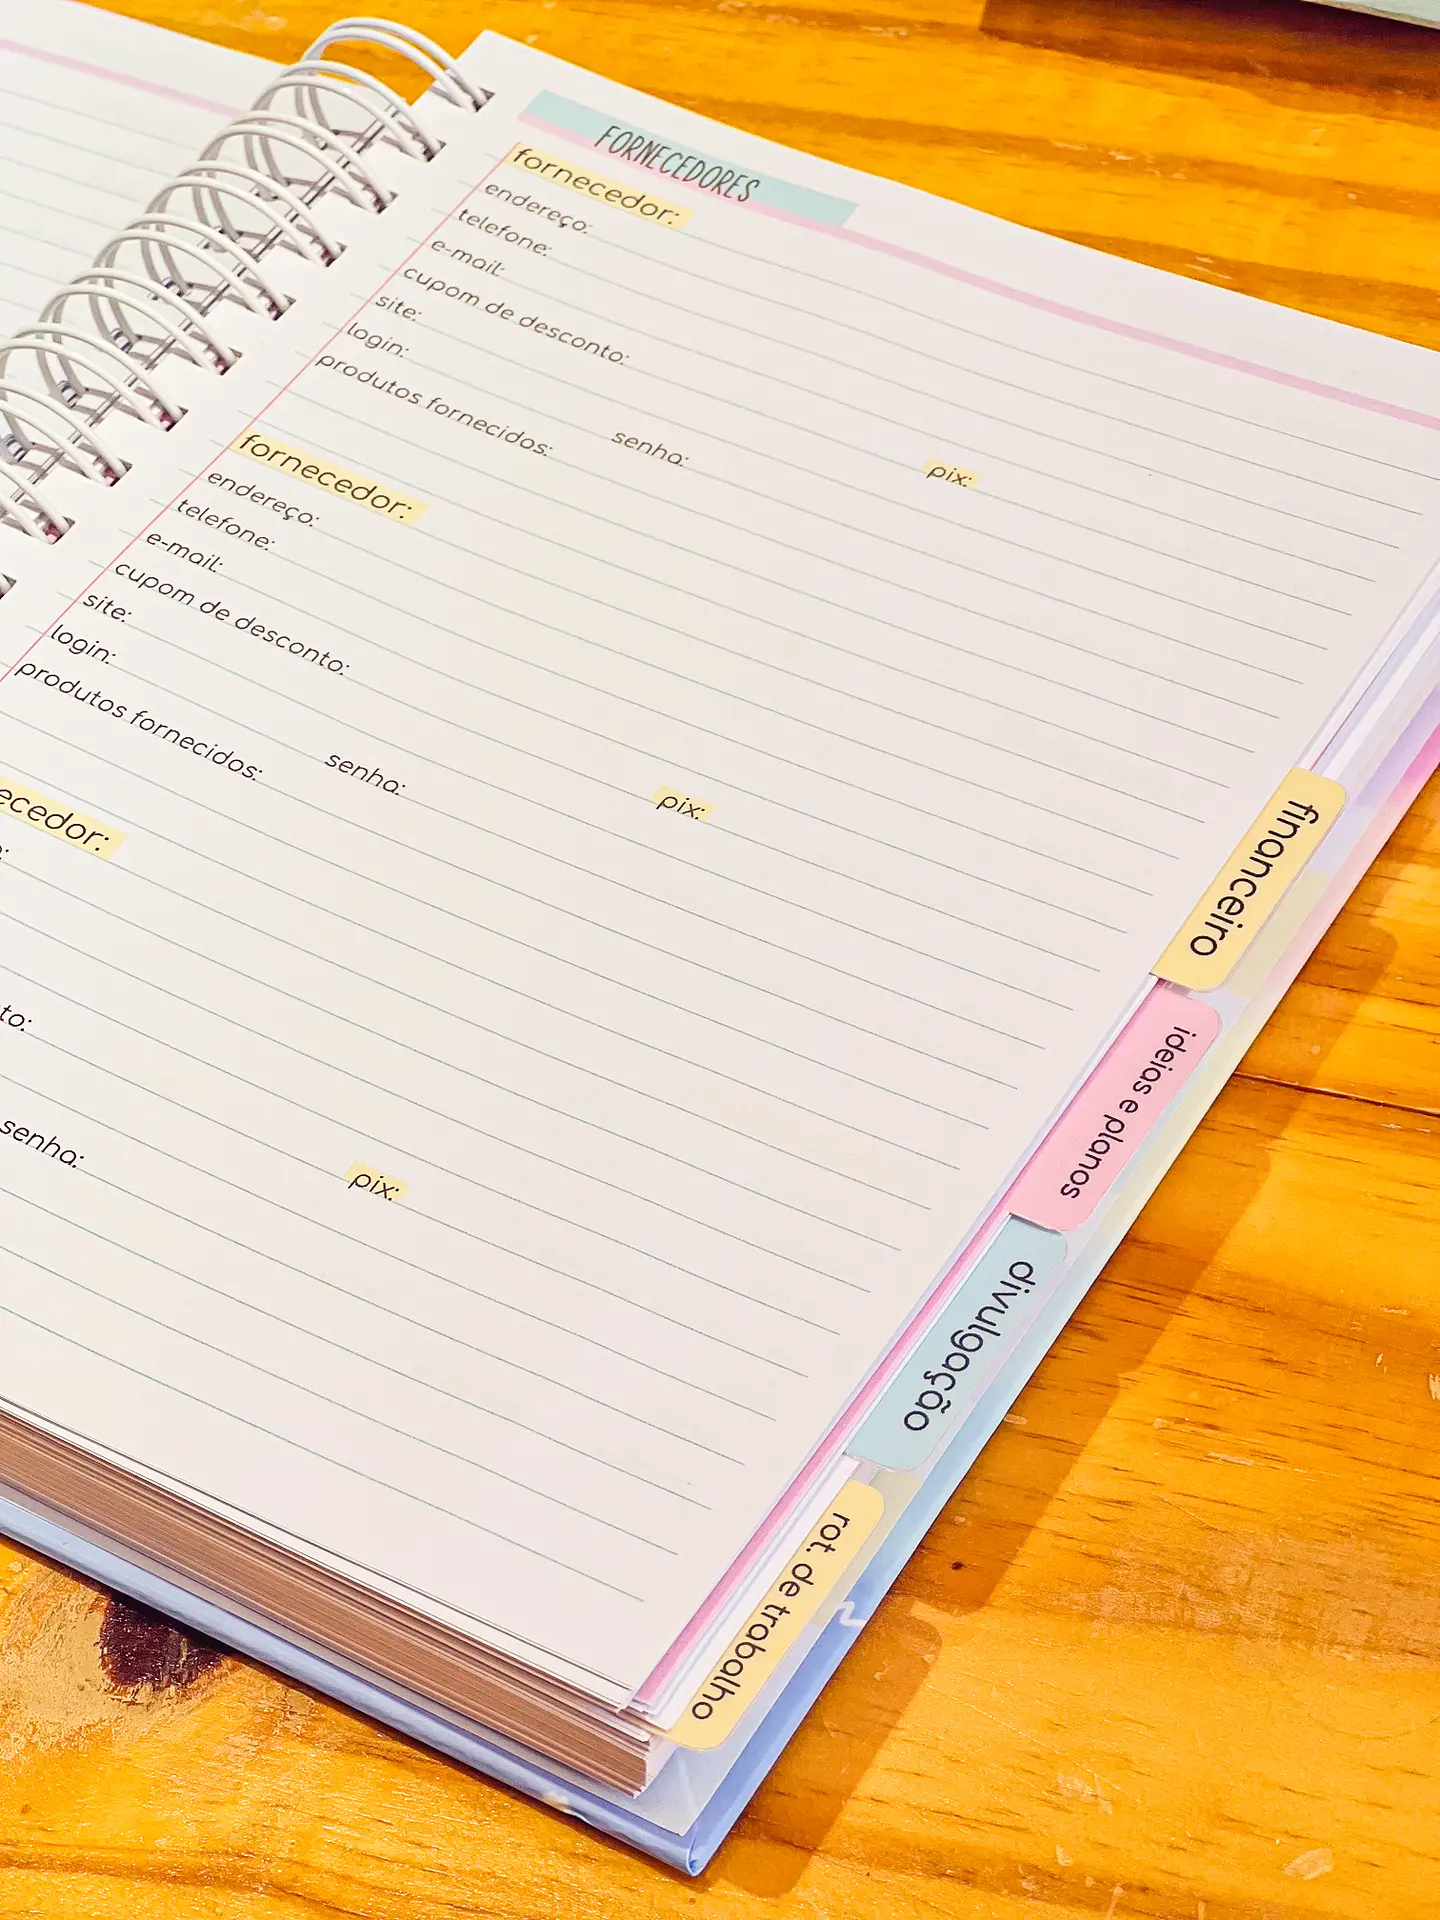 FORNECEDORES
fornecedor:
endereço:
telefone:
e-mail:
cupom de desconto:
site:
login: senha: pix:
produtos fornecidos:
fornecedor:
endereço:
telefone:
e-mail:
cupom de desconto:
site:
login: senha: pix:
produtos fornecidos:
ecedor:
o:
to:
senha: pix:
financeiro
ideias e planos
divulgação
rot. de trabalho